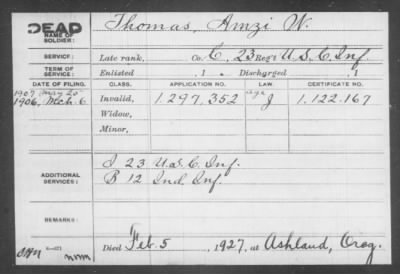 DEAD
NAME OF SOLDIER:
Thomas, Amzi W.
SERVICE:
Late rank, Co. C, 23 Reg't U.S.C. Inf.
TERM OF SERVICE:
Enlisted , 1 Discharged , 1
DATE OF FILING. CLASS. APPLICATION NO. LAW. CERTIFICATE NO.
1907 May 20 age
1906, Mch. 6 Invalid, 1.297.352 J 1.122.167
Widow,
Minor,
ADDITIONAL SERVICES:
I 23 U.S.C. Inf.
B 12 Ind. Inf.
REMARKS:
Died Feb. 5, 1927, at Ashland, Oreg.
6—421